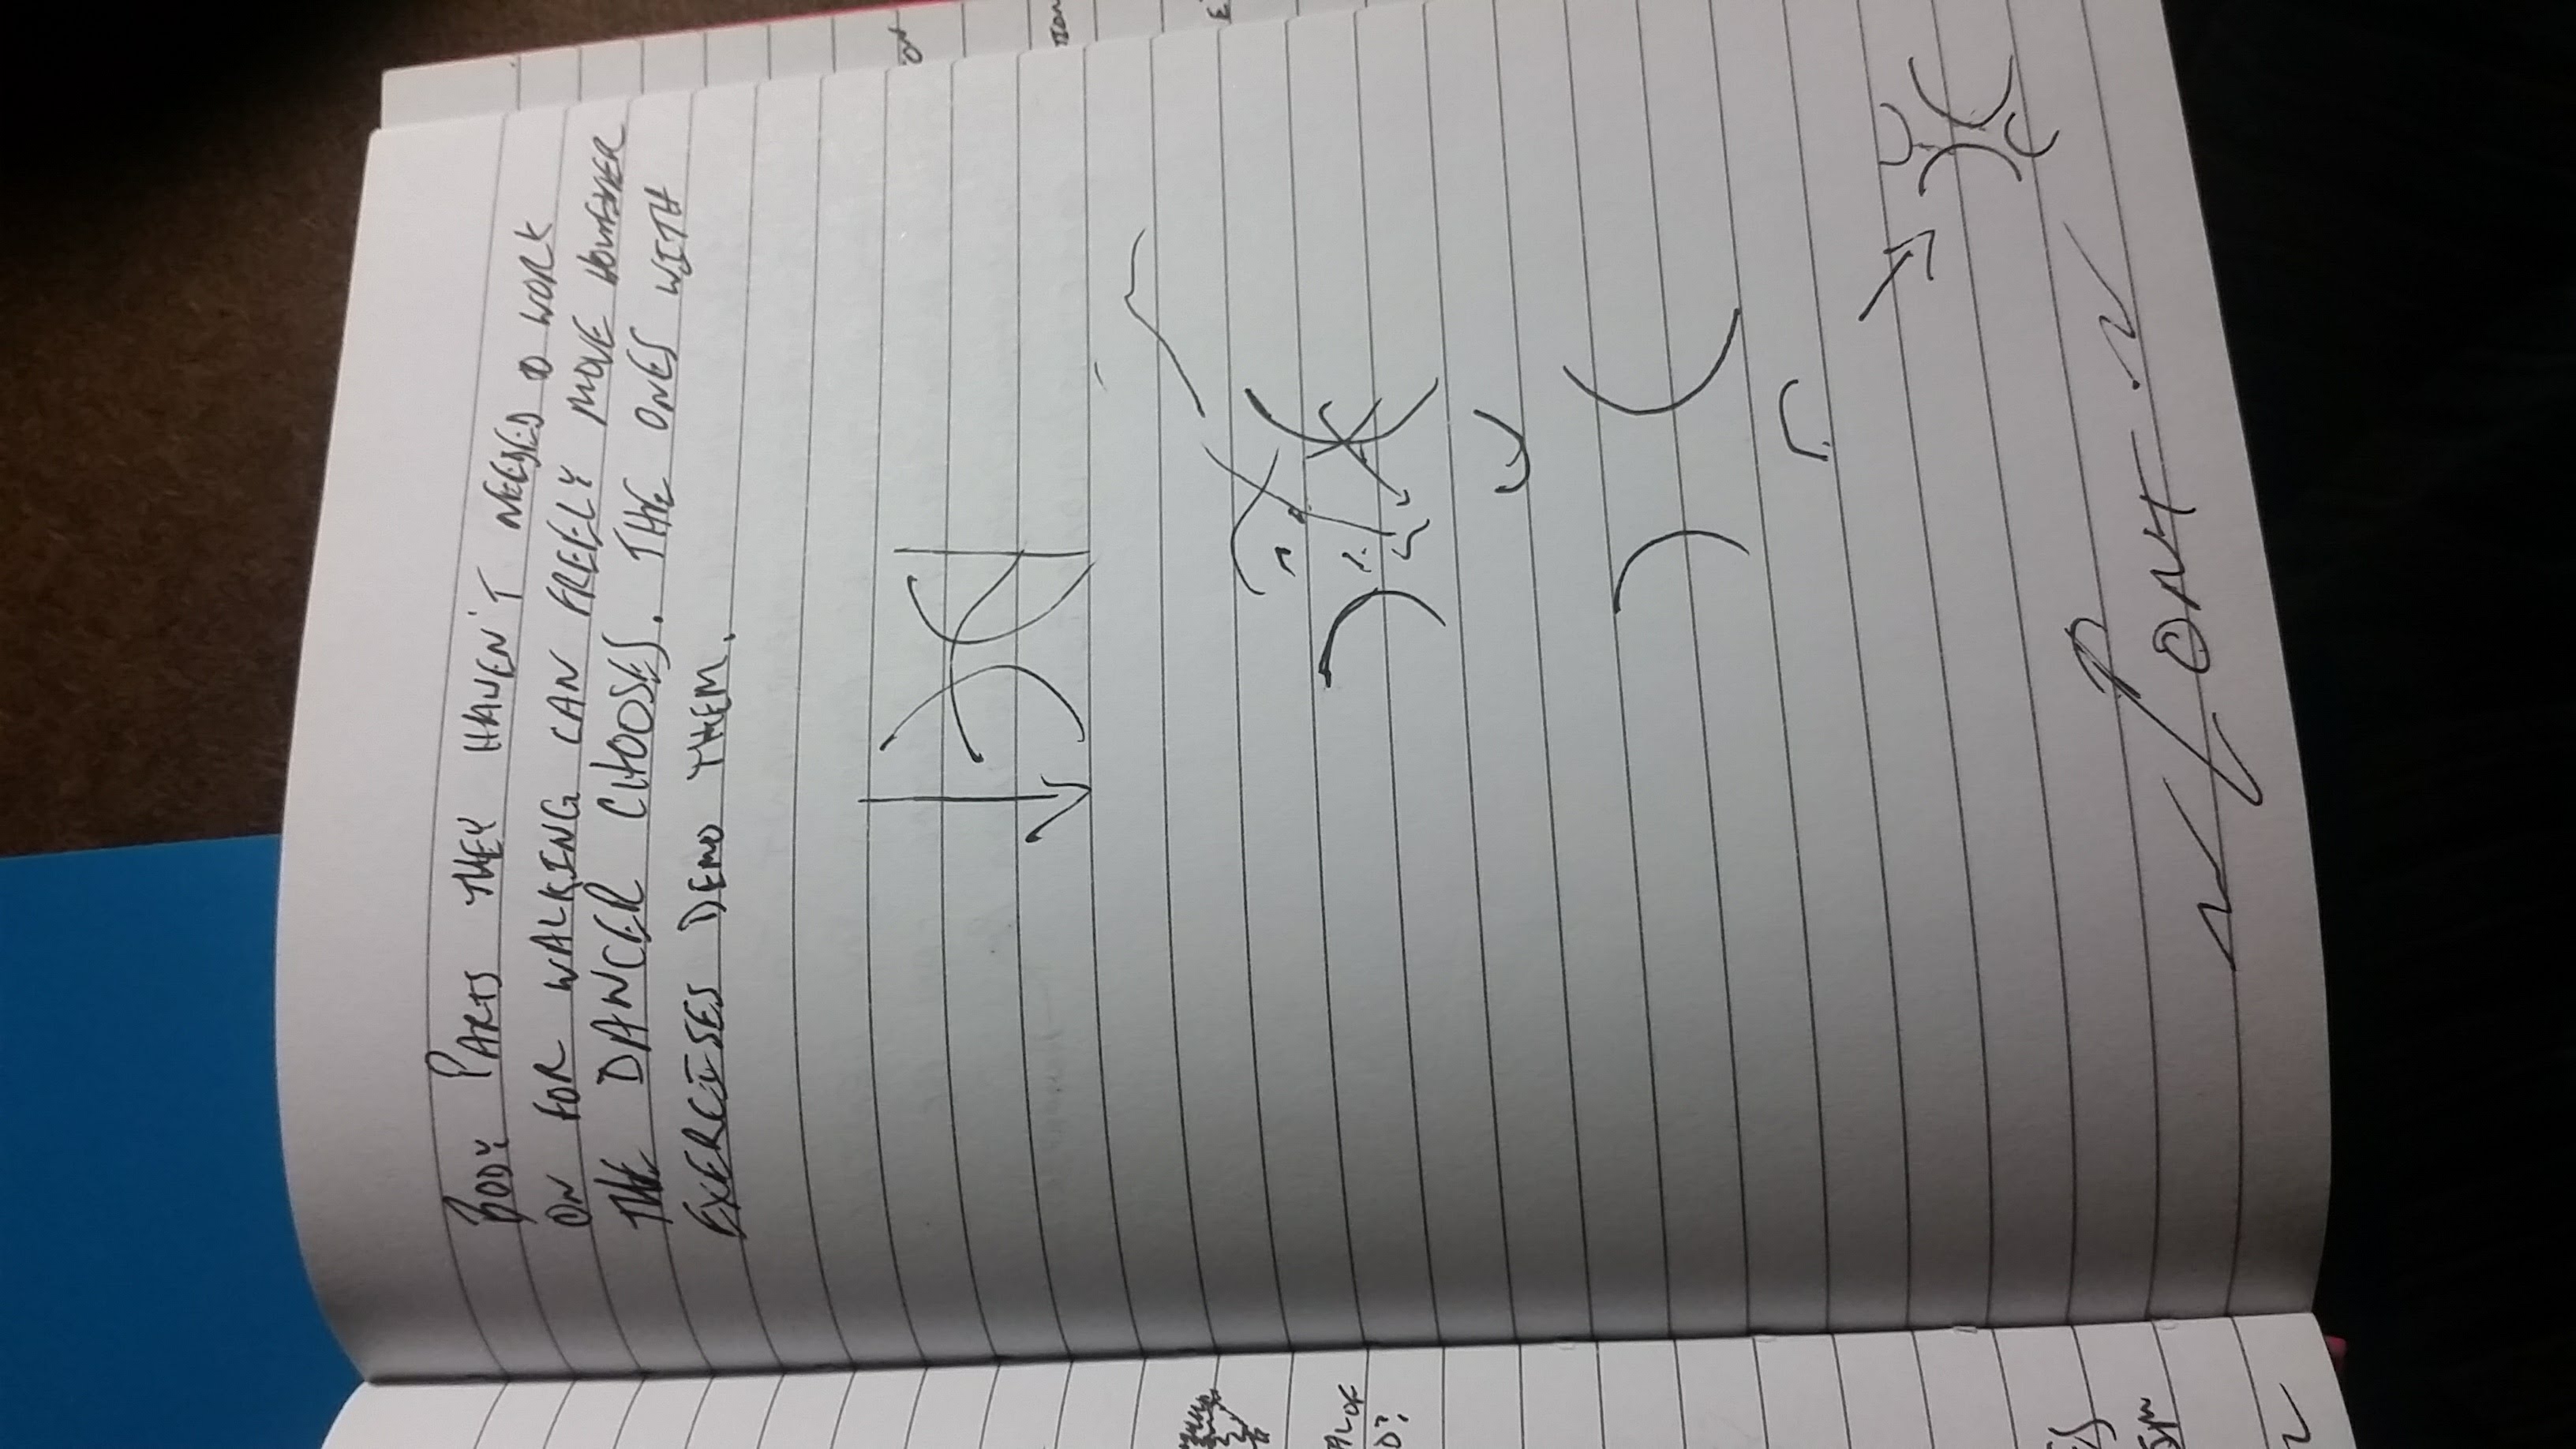 BODY PARTS THEY HAVEN'T NEEDED TO WORK
ON FOR WALKING CAN FREELY MOVE HOWEVER
THE DANCER CHOOSES. THE ONES WITH
EXERCISES DEMO THEM.
CONT
ON
TION
E
AL OF
D?
ES